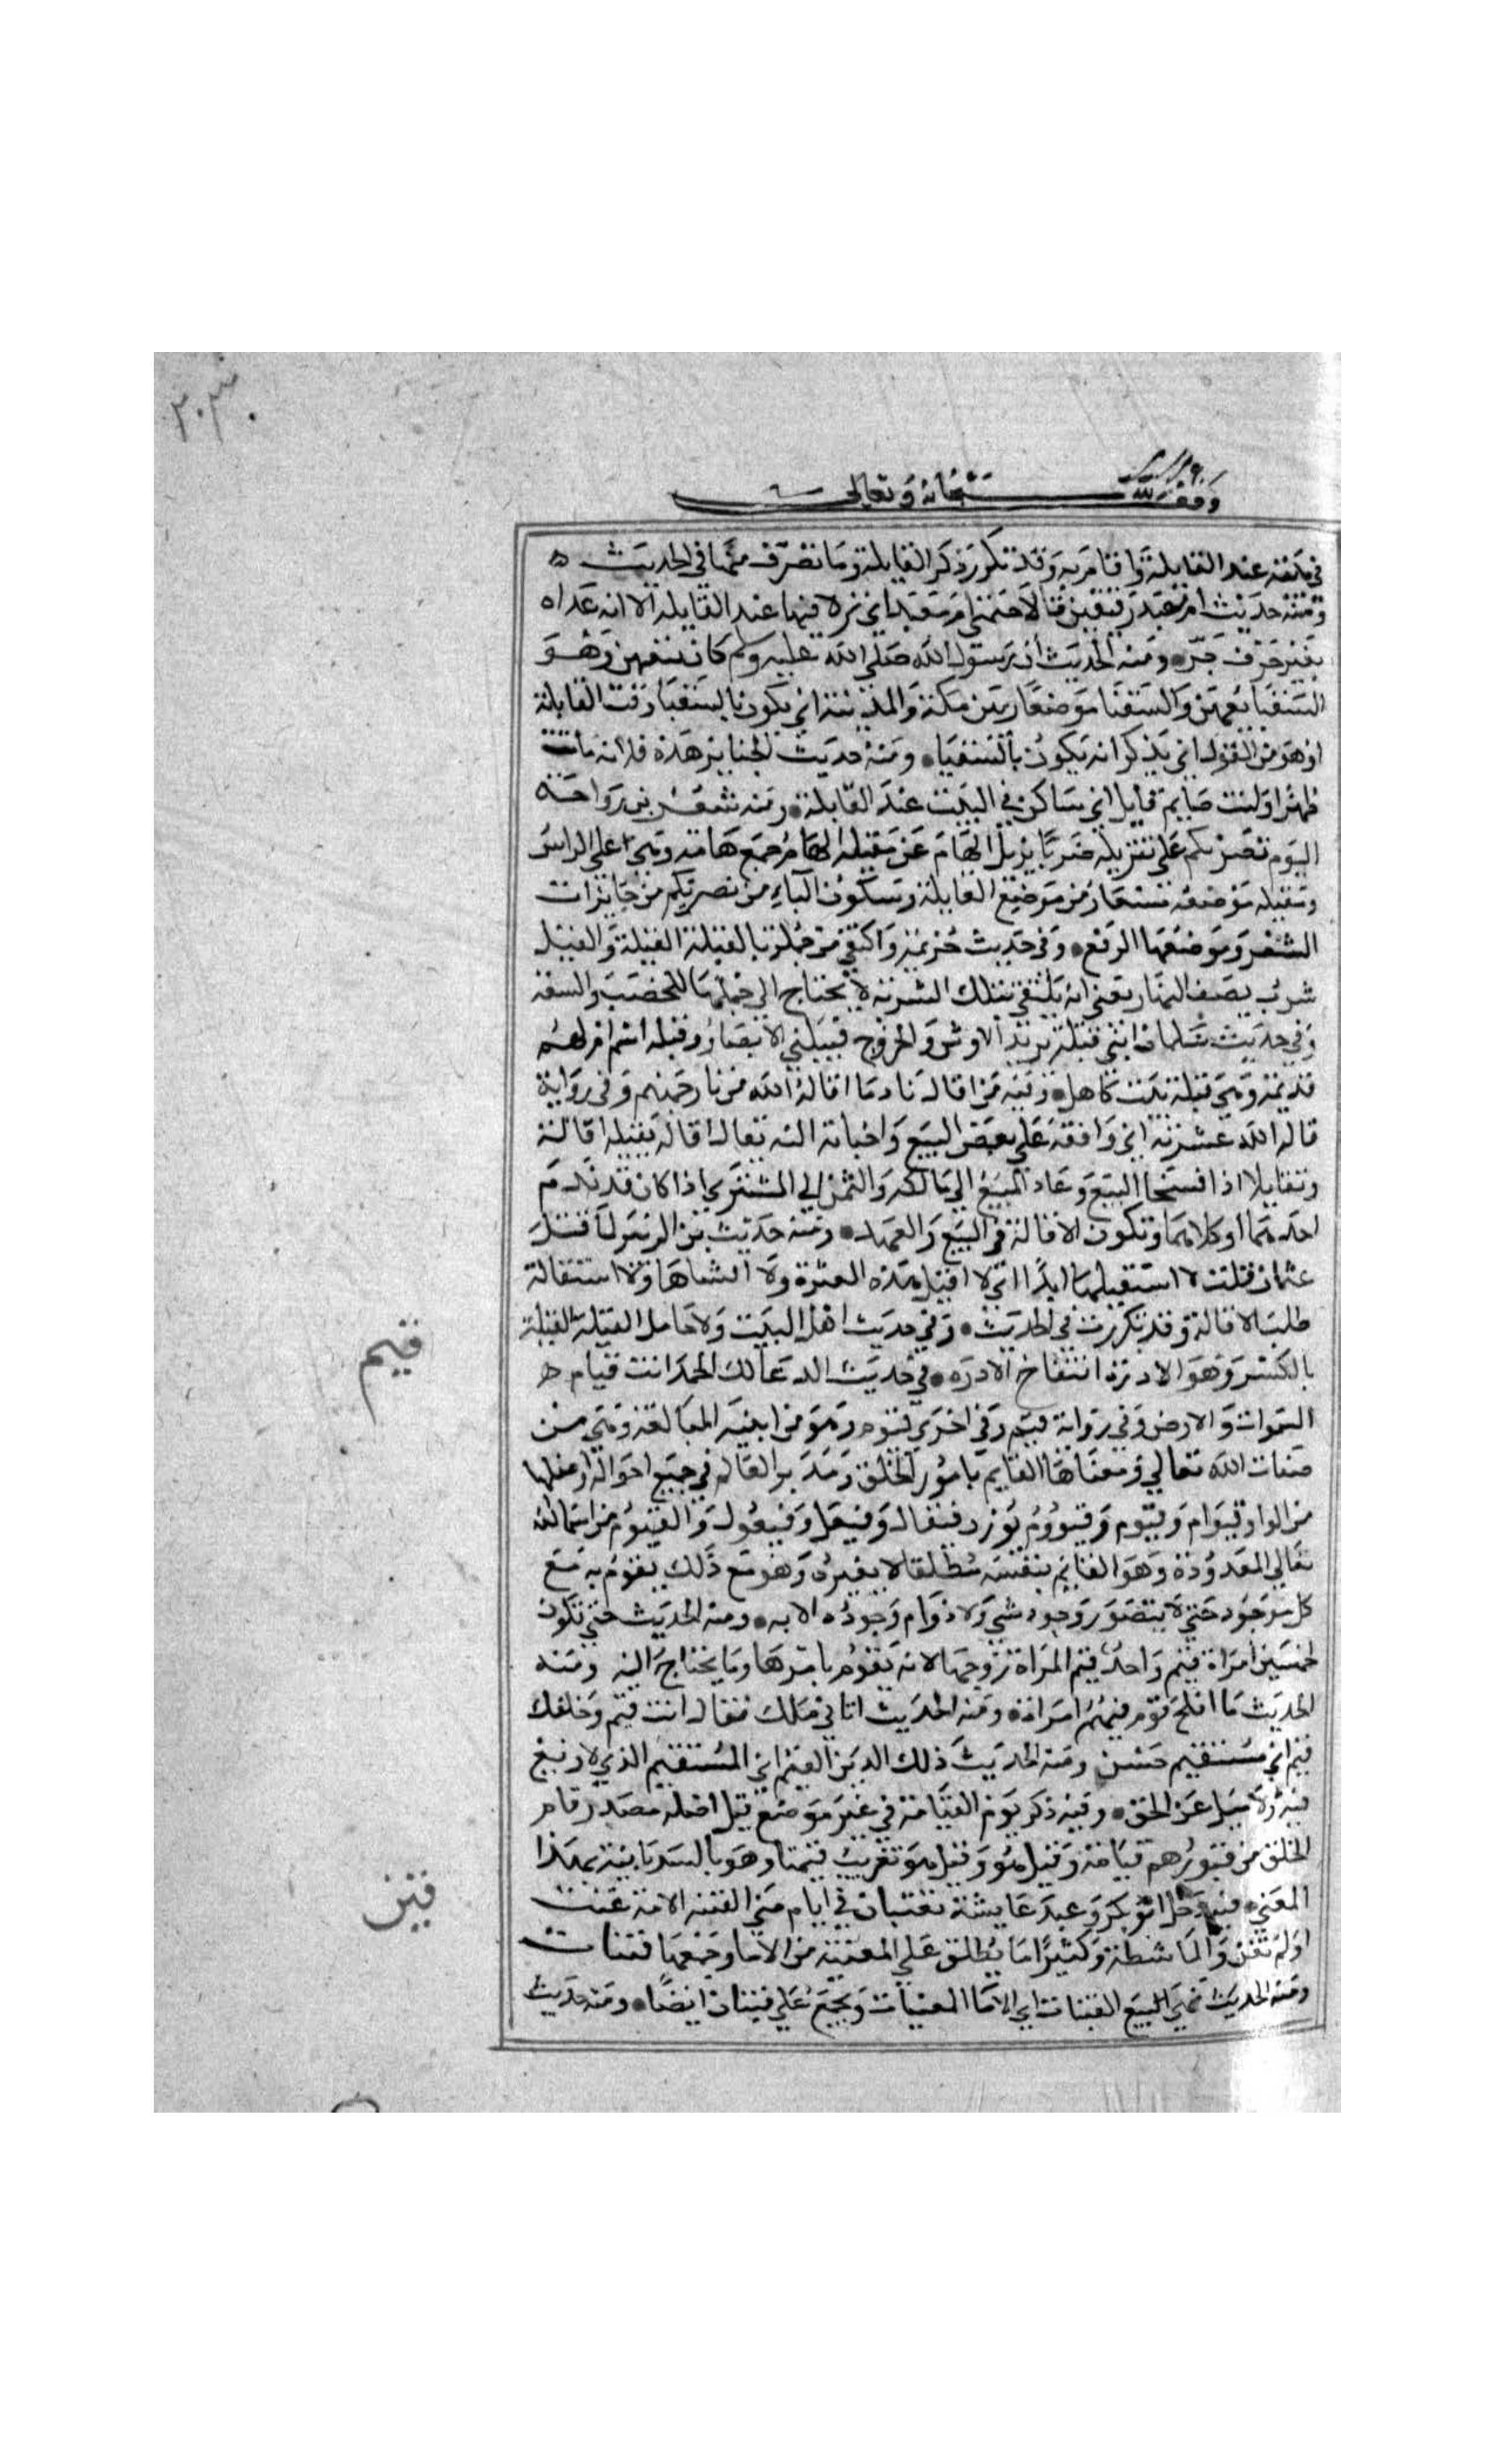 ٣٠٣
وقف لله سبحانه وتعالى
في وقته عند القايلة واقام به وقد تكرر ذكر القايلة وما تصرف منها في الحديث ه
ومنه حديث ام معبد رفيقين قالا خيمتي ام معبد اي نزلا فيها عند القايلة الا انه عداه
بغير حرف جر ومنه الحديث ان رسول الله صلى الله عليه وسلم كان بتعهن وهو
السقيا تعهن والسقيا موضعان بين مكة والمدينة اي يكون بالسقيا وقت القايلة
او هو من القول اي يذكر انه يكون بالسقيا ومنه حديث الجنايز هذه فلانة ماتت
ظهرا وانت صايم قايل اي ساكن في البيت عند القايلة ومنه شعر بن رواحة
اليوم نضربكم على تنزيله ضربا يزيل الهام عن مقيله الهام جمع هامة وهي اعلى الراس
ومقيله موضعه مستعار من موضع القايلة وسكون الباء من نضربكم من جايزات
الشعر وموضعها الرفع وفي حديث خزيمة واكتفي من حمله بالقيلة القيلة والقيل
شرب نصف النهار يعني انه يكتفي بتلك الشربة لا يحتاج الى حملها للخصب والسعة
وفي حديث سلمان ابني قيلة يريد الاوس والخزرج قبيلتي الانصار وقيلة اسم ام لهم
قديمة وهي قيلة بنت كاهل وفيه من اقال نادما اقاله الله من نار جهنم وفي رواية
قاله الله عثرته اي وافقه على نقض البيع واجابه اليه يقال اقاله يقيله اقالة
وتقايلا اذا فسخا البيع وعاد المبيع الى مالكه والثمن الى المشتري اذا كان قد ندم
احدهما او كلاهما وتكون الاقالة في البيع والعهد ومنه حديث بن الزبير لما قتل
عثمان قلت لا استقيلها ابدا اي لا اقيل هذه العثرة ولا انساها والاستقالة
طلب الاقالة وقد تكررت في الحديث وفي حديث اهل البيت ولا حامل القيلة القيلة
بالكسر وهو الادرة انتفاخ الادره في حديث الدعا لك الحمد انت قيام
السموات والارض وفي رواية قيم وفي اخرى قيوم وهو من ابنية المبالغة وهي من
صفات الله تعالى ومعناها القايم بامور الخلق ومدبر العالم في جميع احواله واصلها
من الواو قيوام وقيوم وقيووم بوزن فيعال وفيعل وفيعول والقيوم من اسما الله
تعالى المعدودة وهو القايم بنفسه مطلقا لا بغيره وهو مع ذلك يقوم به مع
كل موجود حتى لا يتصور وجود شي ولا دوام وجوده الا به ومنه الحديث حتى تكون
لخمسين امراة قيم واحد قيم المراة زوجها لانه يقوم بامرها وما يحتاج اليه ومنه
الحديث ما افلح قوم قيمهم امراة ومنه الحديث اتاني ملك فقال انت قيم وخلقك
قيم اي مستقيم حسن ومنه الحديث ذلك الدين القيم اي المستقيم الذي لا زيغ
فيه ولا ميل عن الحق وفيه ذكر يوم القيامة في غير موضع قيل اصله مصدر قام
الخلق من قبورهم قيامة وقيل هو وقيل هو تعريب قيمتا وهو بالسريانية بهذا
المعنى فيه دخل ابو بكر وعند عايشة تغنيان في ايام منى القينة الامة غنت
او لم تغن والماشطة وكثيرا ما يطلق على المغنية من الاما وجمعها قينات
ومنه الحديث نهى البيع القينات اي الاما المغنيات وتجمع على قينان ايضا ومنه حديث
قيم
قين